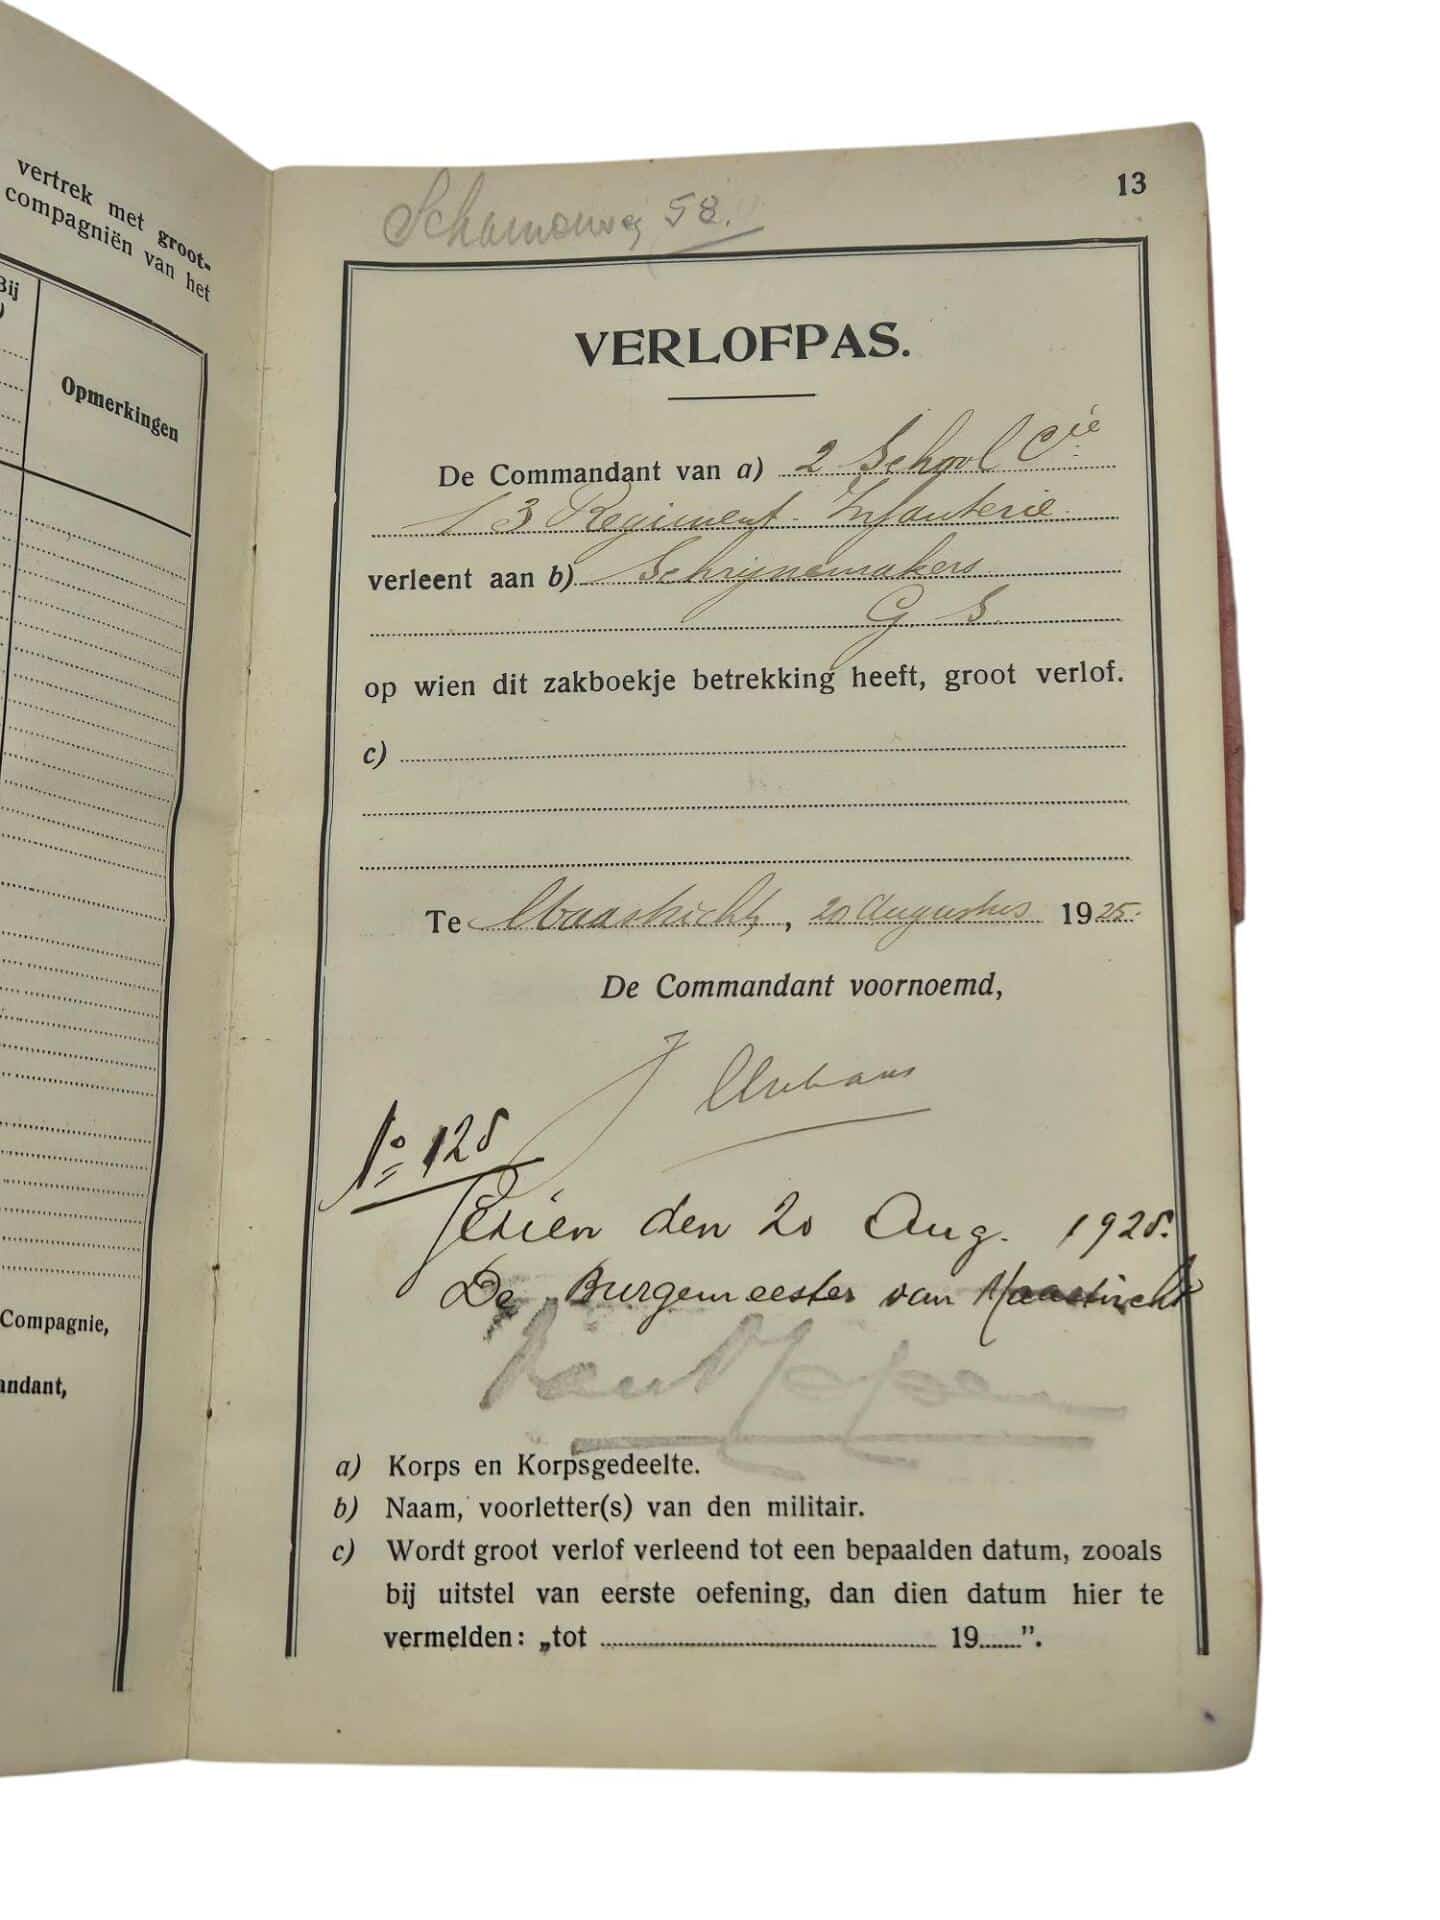 vertrek met groot-
compagniën van het
Bij
Opmerkingen
Compagnie,
andant,
13
58.
VERLOFPAS.
De Commandant van a) 2 School Cie
13 Regiment Infanterie
verleent aan b) Schrijnemakers
G. S.
op wien dit zakboekje betrekking heeft, groot verlof.
c)
Te Maastricht, 20 Augustus 1925.
De Commandant voornoemd,
No 128
Gezien den 20 Aug. 1925.
De Burgemeester van Maastricht
a) Korps en Korpsgedeelte.
b) Naam, voorletter(s) van den militair.
c) Wordt groot verlof verleend tot een bepaalden datum, zooals
bij uitstel van eerste oefening, dan dien datum hier te
vermelden: „tot 19......”.